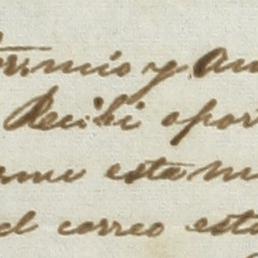 mio y
Recibi opor
me esta m
el correo esta